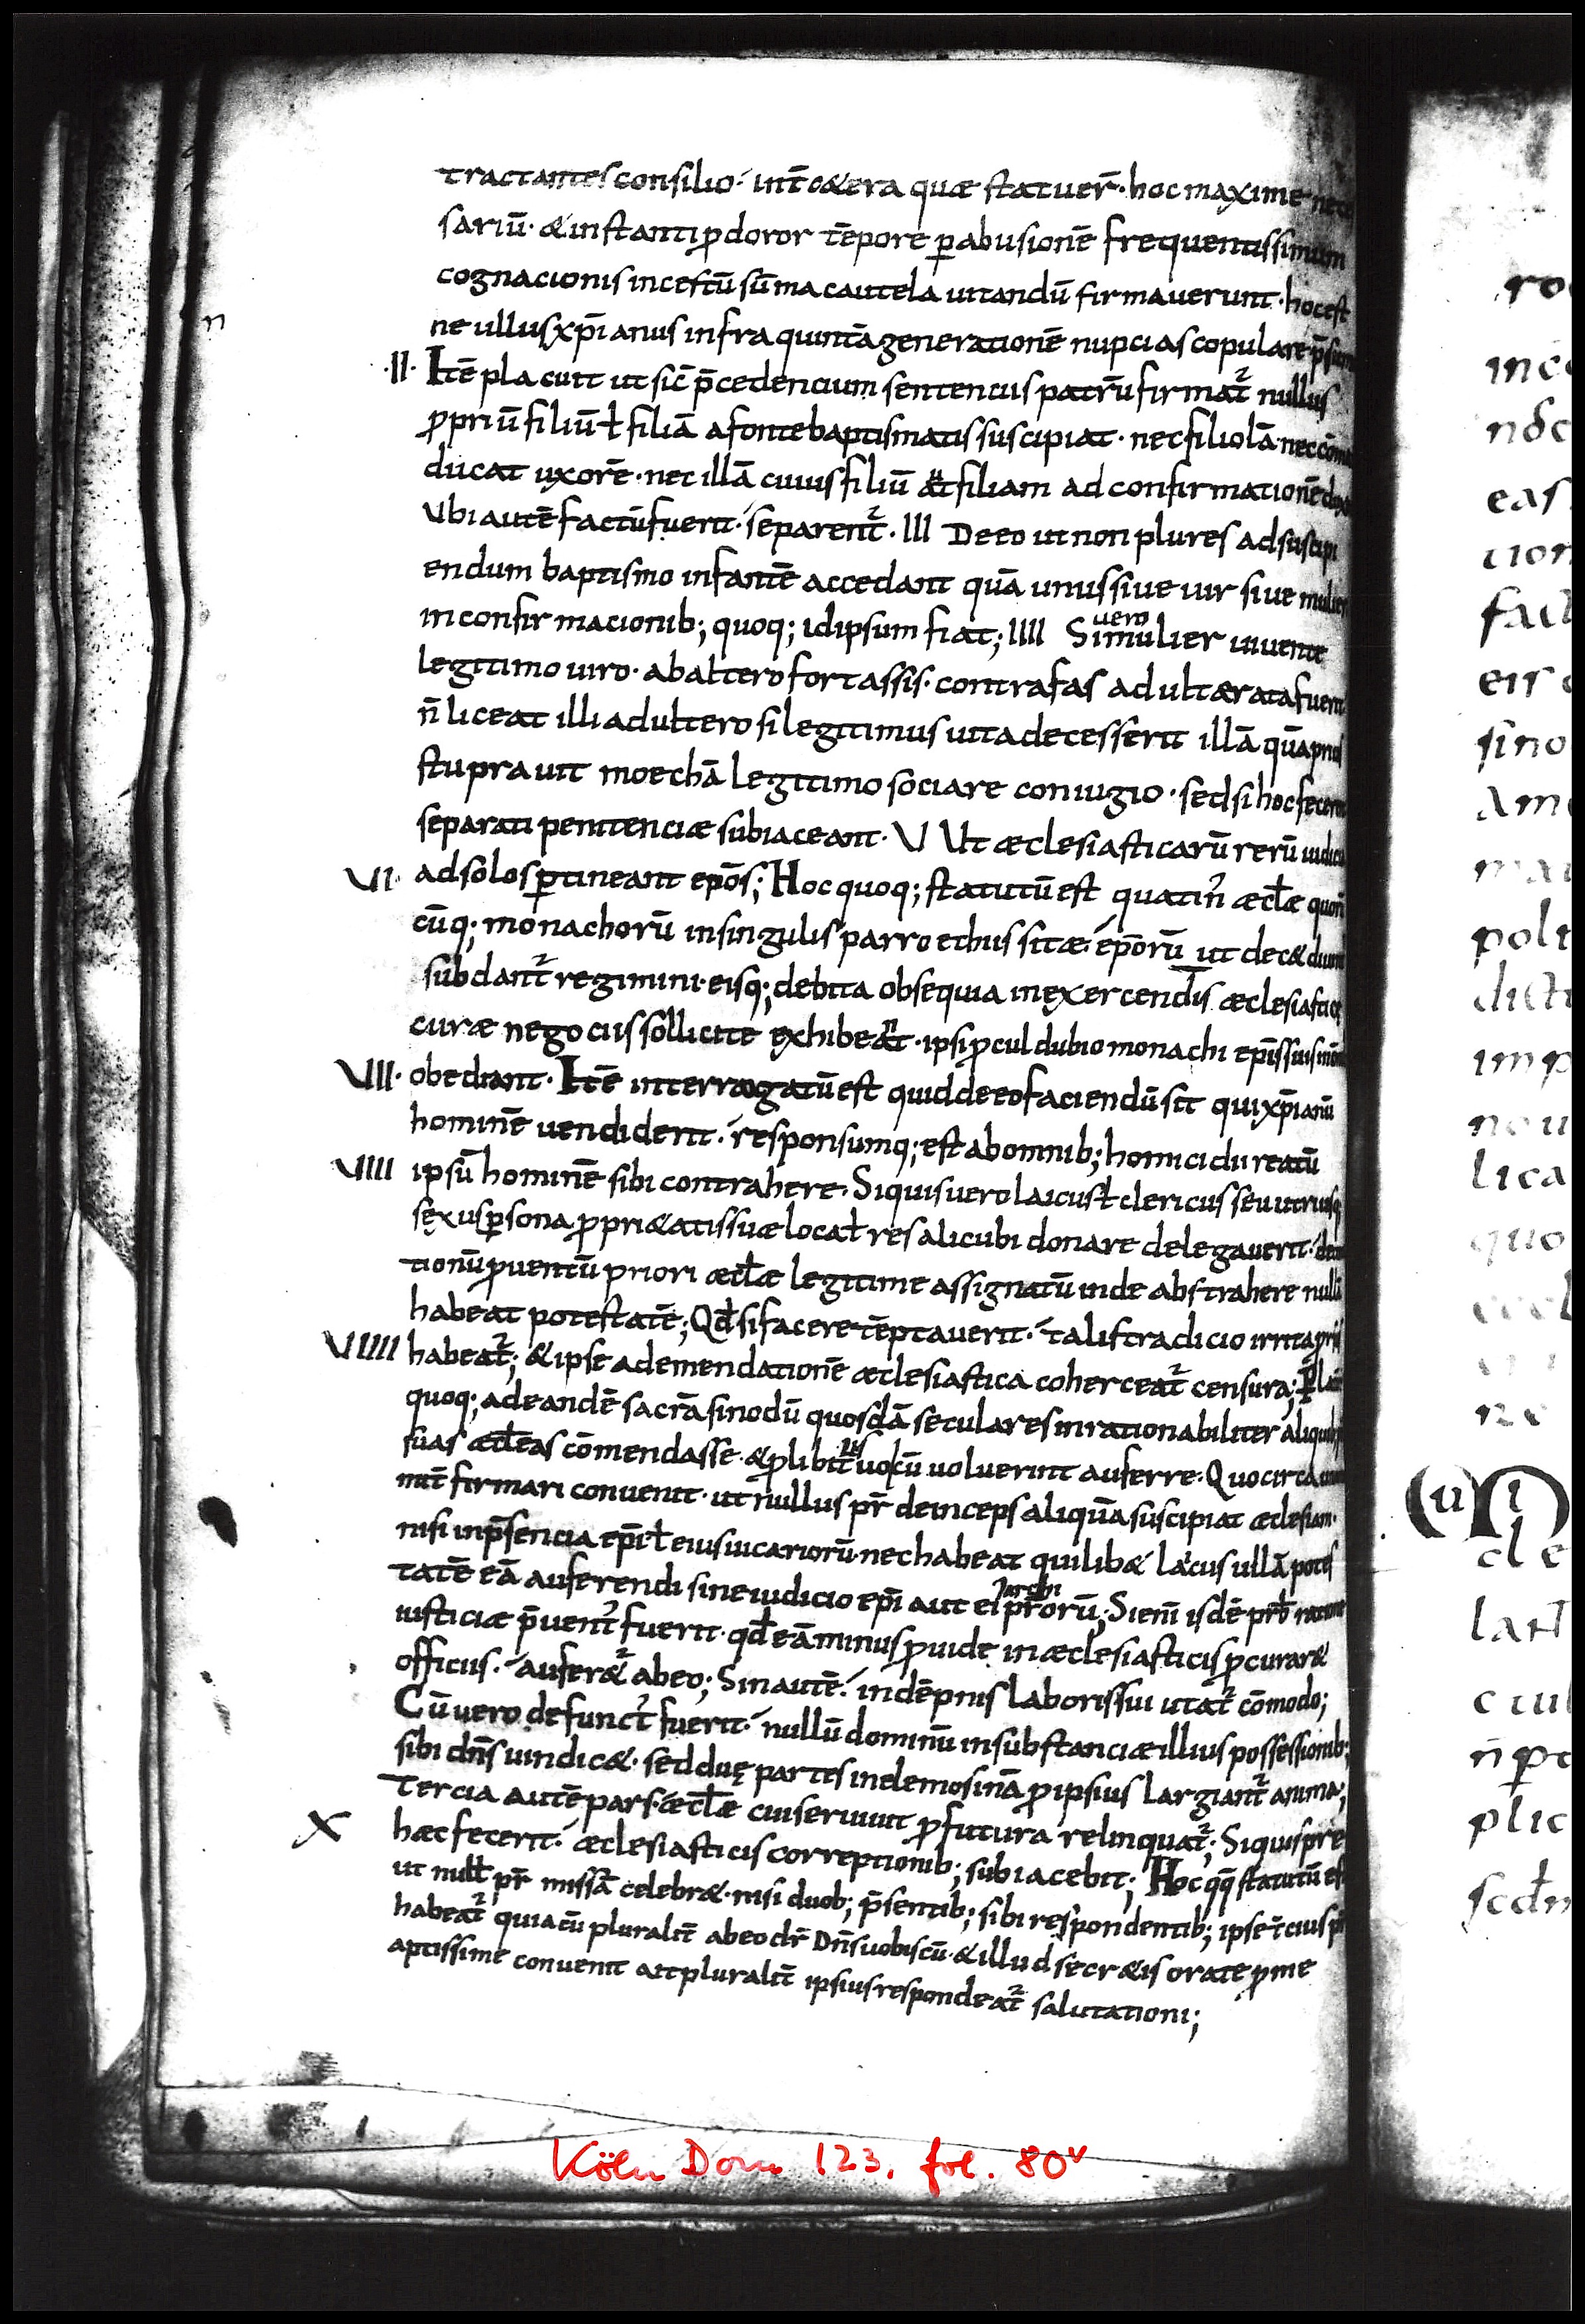 tractantes consilio · int̄ c&era quæ statuer̄ · hoc maxime nece
sariū · & instanti ꝓdoror tēpore ꝑ abusionē frequentissimum
cognacionis incestū sūma cautela uitandū firmauerunt · hoc est
ne ullus xp̄ianus infra quintā generationē nupcias copulare p̄sum
·II· Itē placuit ut sic̄ p̄cedencium sentenciis patrū firmat᷒ nullus
ꝓpriū filiū ł filiā a fonte baptismatis suscipiat · nec filiolā nec cōm
ducat uxorē · nec illā cuius filiū aut filiam ad confirmationē
Vbi autē factū fuerit · separent᷒ · III De eo ut non plures ad suscipi
endum baptismo infantē accedant quā unus siue uir siue mulier
in confirmacionib; quoq; id ipsum fiat; IIII Si uero mulier uiuente
legitimo uiro · ab altero fortassis · contra fas adulterata fuerit
n̄ liceat illi adultero si legitimus uita decesserit illā quā prius
stuprauit moechā legitimo sociare coniugio · sed si hoc fecerint
separati penitenciæ subiaceant · V Ut æclesiasticarū rerū iudicia
VI· ad solos ꝑtineant ep̄os; Hoc quoq; statutū est quatin᷒ æcłæ quor̄
cūq; monachorū in singulis parroechiis sitæ · ep̄orū ut dec& diuini
subdant᷒ regimini · eisq; debita obsequia in exercendis æclesiasticæ
curæ negociis sollicite exhibeant · ipsi ꝓcul dubio monachi ep̄is suis
VII· obediant · Itē interrogatū est quid de eo faciendū sit qui xp̄ianū
hominē uendiderit · responsumq; est ab omnib; homicidii reatū
VIII ipsū hominē sibi contrahere · Si quis uero laicus ł clericus seu utriusq;
sexus ꝑsona ꝓpri&atis suæ locał res alicubi donare delegauerit ·
tionū ꝓuentū priori æcłæ legitime assignatū inde abstrahere nullā
habeat potestatē; Qđ si facere tēptauerit · talis tradicio irrita
VIIII habeat᷒; & ipse ad emendationē æclesiastica coherceat᷒ censura; Plac
quoq; ad eandē sacrā sinodū quosdā seculares inrationabiliter aliquib;
suas æcłeas cōmendasse · & ꝓ libitus uo cū uoluerint auferre · Quocirca
mit̄ firmari conuenit · ut nullus pr̄ deinceps aliquā suscipiat æclesiam ·
nisi in p̄sencia ep̄i ł eius uicariorū · nec habeat quilib& laicus ullā potes
tatē eā auferendi sine iudicio ep̄i aut ei᷒ archi pr̄orū; Si eni᷒ isdē prb̄
iusticiæ p̄uent᷒ fuerit · qđ eā minus ꝓuide in æclesiasticis ꝓcurar&
officiis · aufer&᷒ ab eo; Sin autē · indēpnis laboris sui utat᷒ cōmodo;
Cū uero defunct᷒ fuerit · nullū dominiū in substanciæ illius possessionib;
sibi dn̄s uindic& · sed duę partes in elemosinā ꝓ ipsius largiant᷒ anima;
Tercia autē pars · æcłæ cui seruiuit ꝓfutura relinquat᷒; Si quis pre
X hæc fecerit · æclesiasticis correptionib; subiacebit; Hoc qq̄ statutū est
ut nulł pr̄ missā celebr& · nisi duob; p̄sentib; sibi respondentib; ipse
habeat᷒ quia cū pluralit̄ ab eo dr̄ Dn̄s uobiscū · & illud secr&is orate ꝓ me
aptissime conuenit att pluralit̄ ipsius respondeat᷒ salutationi;
Köln Dom 123, fol. 80v